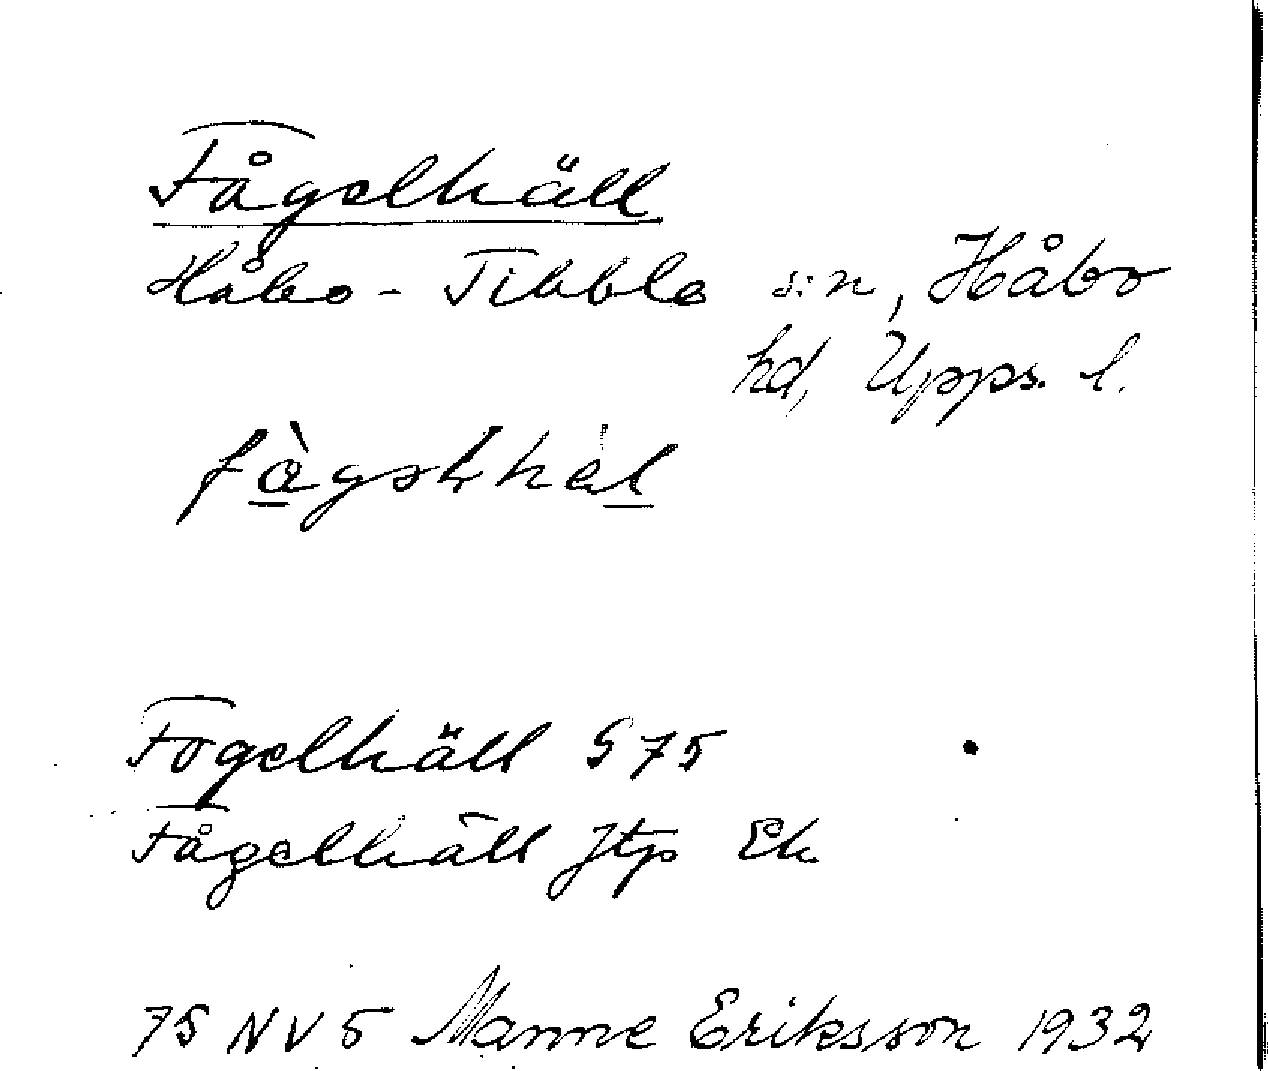 Fågelhäll
Håbo-Tibble s:n, Håbo
hd, Upps. l.
Fogelhäll S 75
Fågelhäll Jtp Ek.
75 NV 5 Manne Eriksson 1932